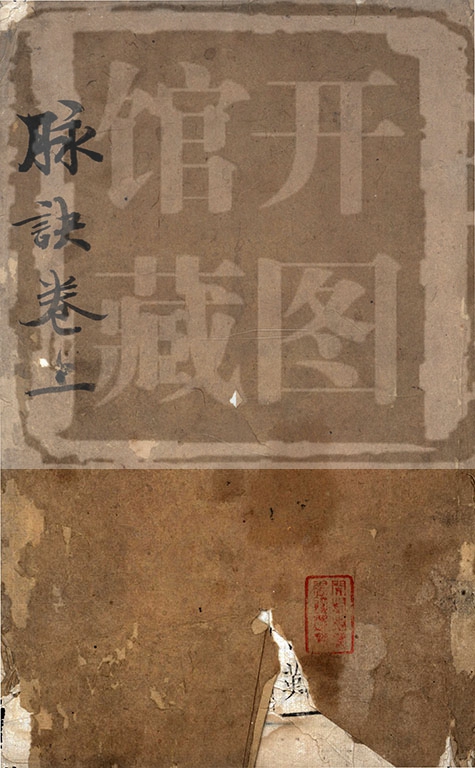 脉訣卷上
开图
馆藏